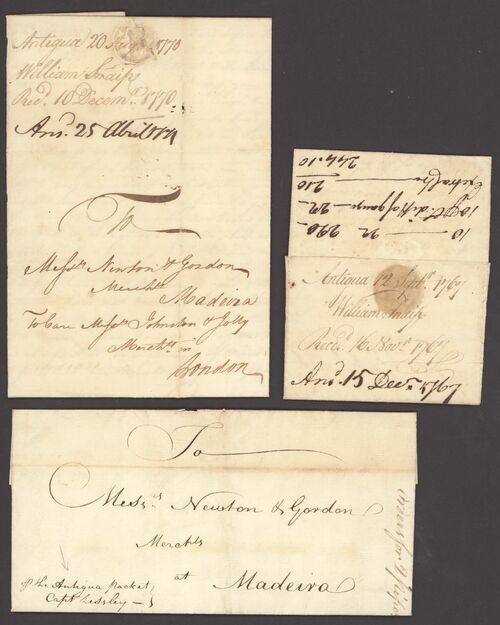 Antigua 20 Augt 1770
William Snaip
Recd. 10 Decemr. 1770
Ansd. 25 Abril 1771
To
Messrs Newton & Gordon
Merchts
Madeira
To Care Messrs Johnston & Jolly
Merchts in
London
10 22 220
10 diff of gauge 22
210
244.10
Antigua 12 Septr. 1767
William Snaip
Recd. 16 Novr. 1767
Ansd. 15 Decr. 1767
To
Messrs Newton & Gordon
Merchts
at Madeira
⅌ the Antigua Packet
Capt Lessley